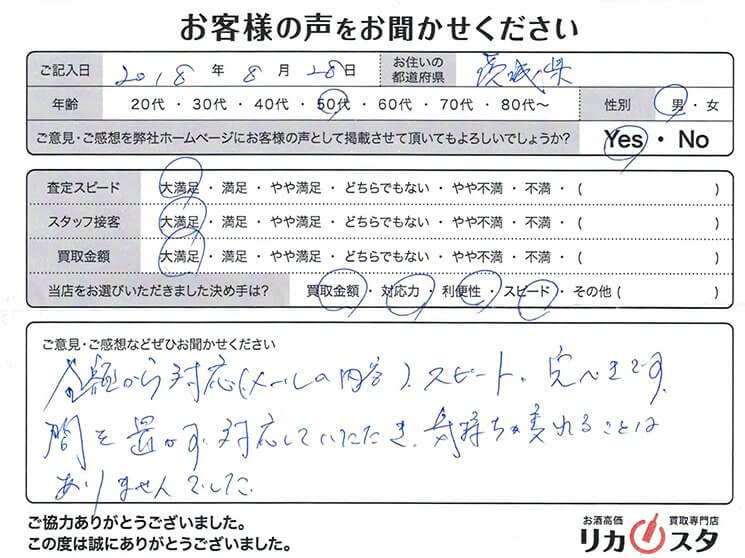 お客様の声をお聞かせください
ご記入日 2018 年 8 月 28 日 お住いの都道府県 茨城県
年齢 20代 ・ 30代 ・ 40代 ・ 50代 ・ 60代 ・ 70代 ・ 80代〜 性別 男 ・ 女
ご意見・ご感想を弊社ホームページにお客様の声として掲載させて頂いてもよろしいでしょうか? Yes ・ No
査定スピード 大満足 ・ 満足 ・ やや満足 ・ どちらでもない ・ やや不満 ・ 不満 ・ ( )
スタッフ接客 大満足 ・ 満足 ・ やや満足 ・ どちらでもない ・ やや不満 ・ 不満 ・ ( )
買取金額 大満足 ・ 満足 ・ やや満足 ・ どちらでもない ・ やや不満 ・ 不満 ・ ( )
当店をお選びいただきました決め手は? 買取金額 ・ 対応力 ・ 利便性 ・ スピード ・ その他 ( )
ご意見・ご感想などぜひお聞かせください
金額から対応(メールの内容)、スピード、完ぺきです。
間を置かず対応していただき、気持ちが
ことは
ありませんでした
ご協力ありがとうございました。
この度は誠にありがとうございました。
お酒高価 買取専門店
リカスタ